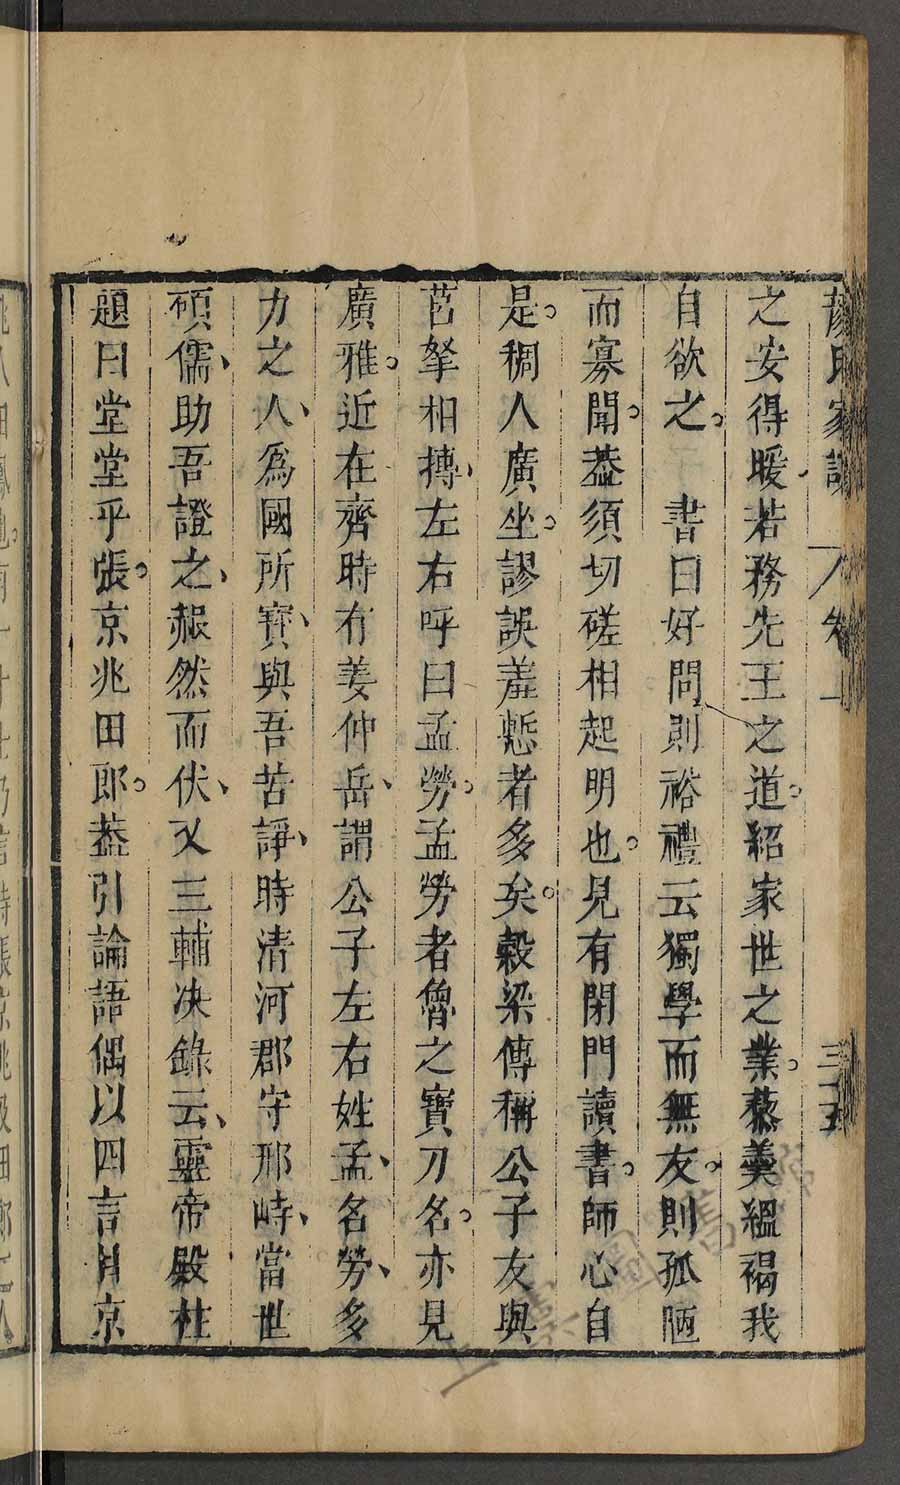 顏氏家訓 卷上 三五
之安得暖若務先王之道。紹家世之業。藜羹縕褐我
自欲之。 書曰好問則裕禮云獨學而無友。則孤陋
而寡聞。葢須切磋相起明也。見有閉門讀書。師心自
是。稠人廣坐。謬誤羞慙者多矣。穀梁傳稱公子友與
莒挐相搏、左右呼曰孟勞。孟勞者魯之寶刀名。亦見
廣雅。近在齊時有姜仲岳、謂公子左右姓孟、名勞、多
力之人、爲國所寶、與吾苦諍、時清河郡守邢峙、當世
碩儒、助吾證之、赧然而伏、又三輔决錄云、靈帝殿柱
題曰堂堂乎張。京兆田郎。葢引論語偶以四言目京